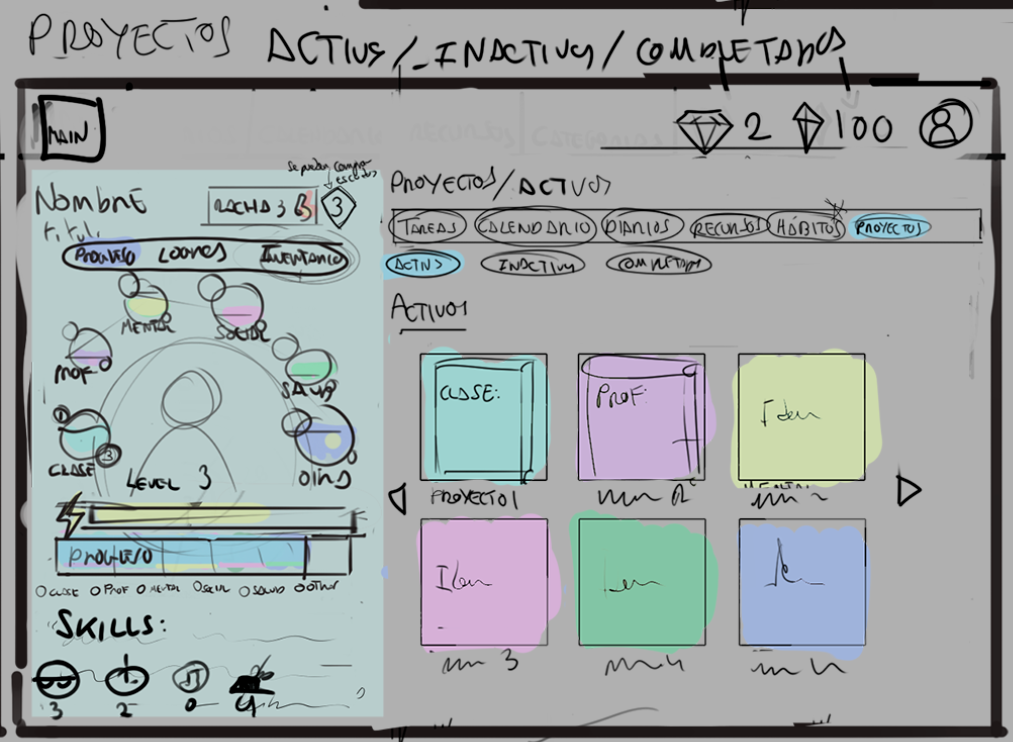 PROYECTOS ACTIVOS / INACTIVOS / COMPLETADOS
MAIN
2
100
Nombre
Titulo
RACHA 3
3
se pueden comprar escudos
PROGRESO LOGROS INVENTARIO
MENTAL
SOCIAL
PROF
SALUD
1
3
CLASE
OTROS
LEVEL 3
PROGRESO
CLASE PROF MENTAL SOCIAL SALUD OTROS
SKILLS:
3
2
0
4
PROYECTOS/ACTIVOS
TAREAS CALENDARIO DIARIOS RECURSOS HÁBITOS PROYECTOS
ACTIVOS INACTIVOS COMPLETADOS
ACTIVOS
CLASE:
PROF:
Idem
PROYECTO 1
MENTAL
Idem
3
4